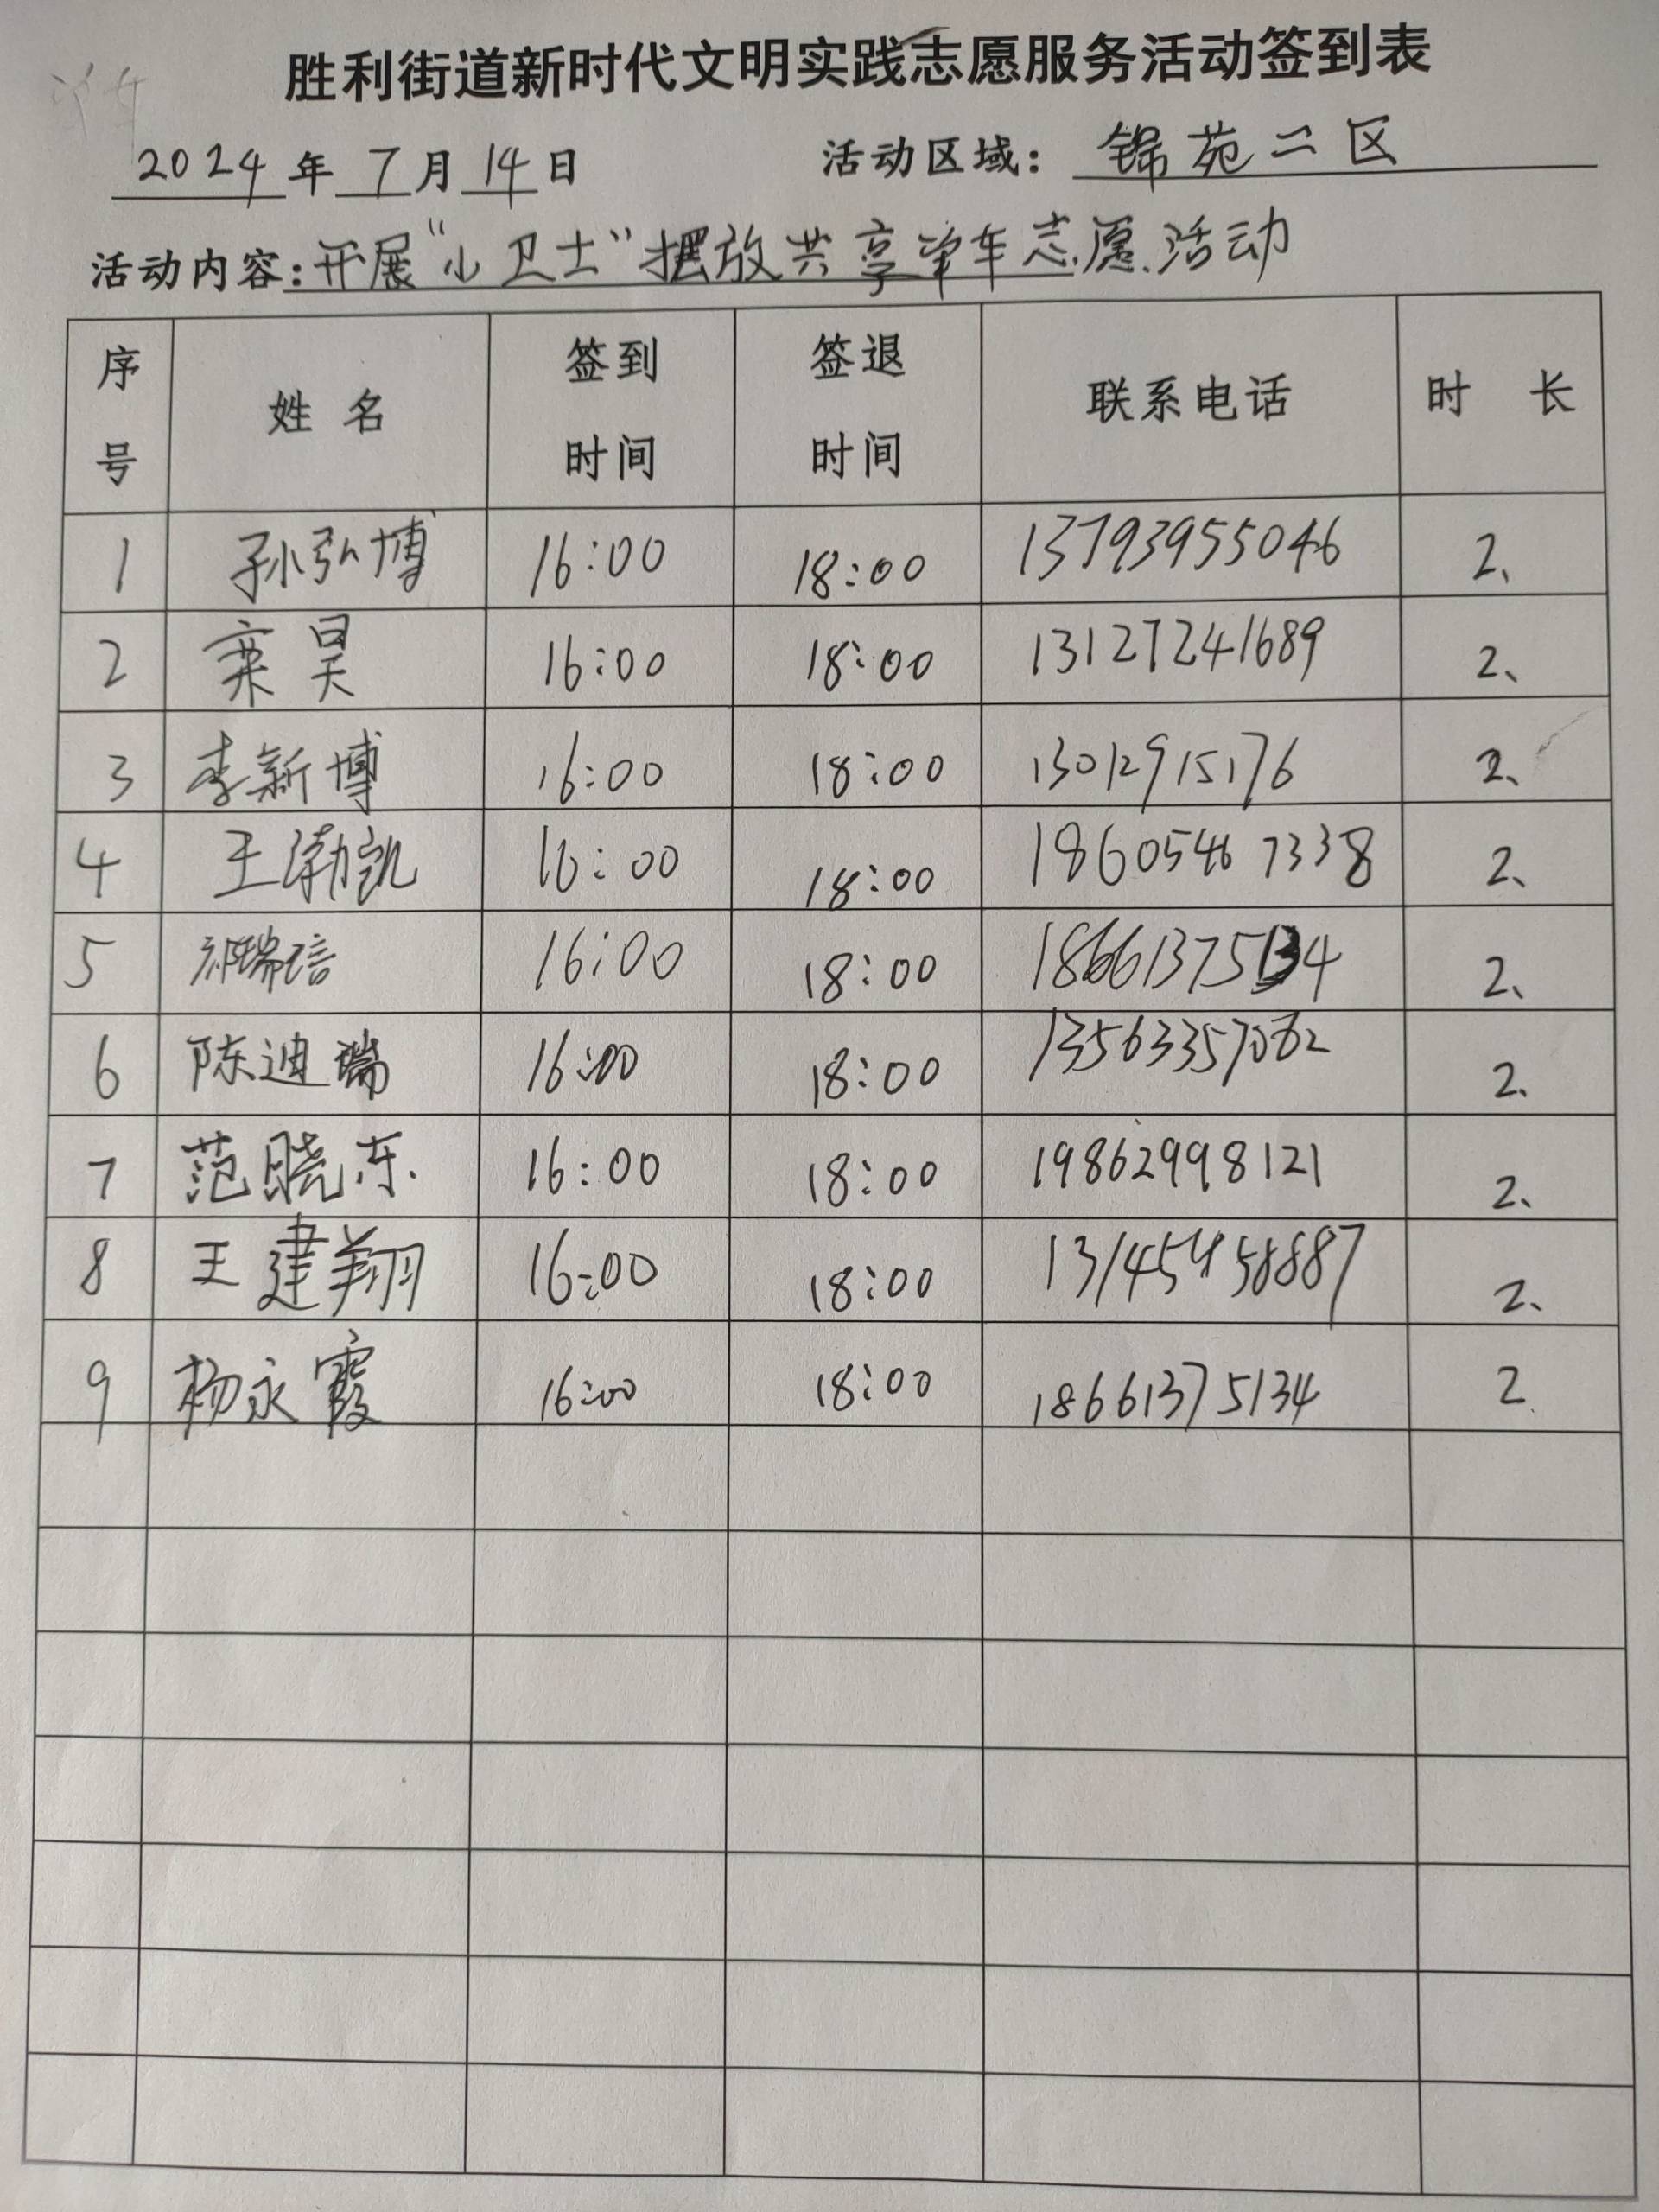 胜利街道新时代文明实践志愿服务活动签到表
2024年7月14日 活动区域：锦苑二区
活动内容：开展“小卫士”摆放共享单车志愿活动
序号 姓名 签到时间 签退时间 联系电话 时长
1 孙弘博 16:00 18:00 13793955046 2、
2 栾昊 16:00 18:00 13127241689 2、
3 李新博 16:00 18:00 13012915176 2、
4 王渤凯 16:00 18:00 18605467338 2、
5 16:00 18:00 18661375134 2、
6 陈迪瑞 16:00 18:00 13563357062 2、
7 范晓东 16:00 18:00 19862998121 2、
8 王建翔 16:00 18:00 2、
9 杨永霞 16:00 18:00 18661375134 2